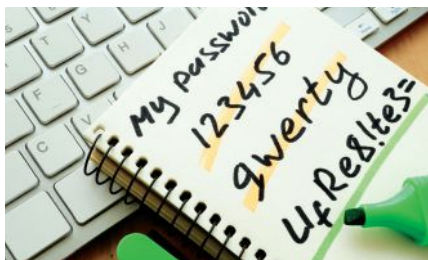 My password
123456
qwerty
UfRe8!te3=